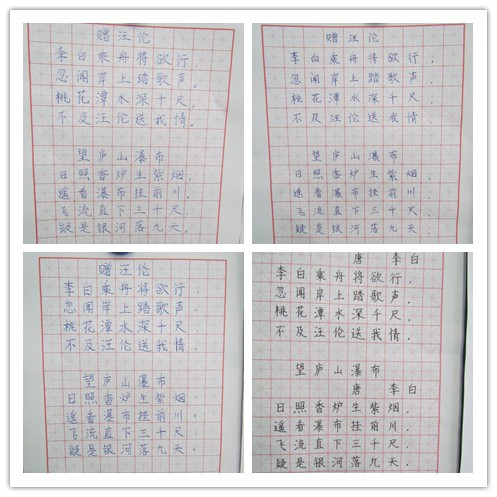 赠汪伦
李白乘舟将欲行，
忽闻岸上踏歌声。
桃花潭水深千尺，
不及汪伦送我情。
望庐山瀑布
日照香炉生紫烟，
遥看瀑布挂前川。
飞流直下三千尺，
疑是银河落九天。
赠汪伦
李白乘舟将欲行，
忽闻岸上踏歌声。
桃花潭水深千尺，
不及汪伦送我情。
望庐山瀑布
日照香炉生紫烟，
遥看瀑布挂前川。
飞流直下三千尺，
疑是银河落九天。
赠汪伦
李白乘舟将欲行，
忽闻岸上踏歌声。
桃花潭水深千尺，
不及汪伦送我情。
望庐山瀑布
日照香炉生紫烟，
遥看瀑布挂前川。
飞流直下三千尺
疑是银河落九天。
唐 李白
李白乘舟将欲行，
忽闻岸上踏歌声。
桃花潭水深千尺，
不及汪伦送我情。
望庐山瀑布
唐 李白
日照香炉生紫烟，
遥看瀑布挂前川。
飞流直下三千尺，
疑是银河落九天。